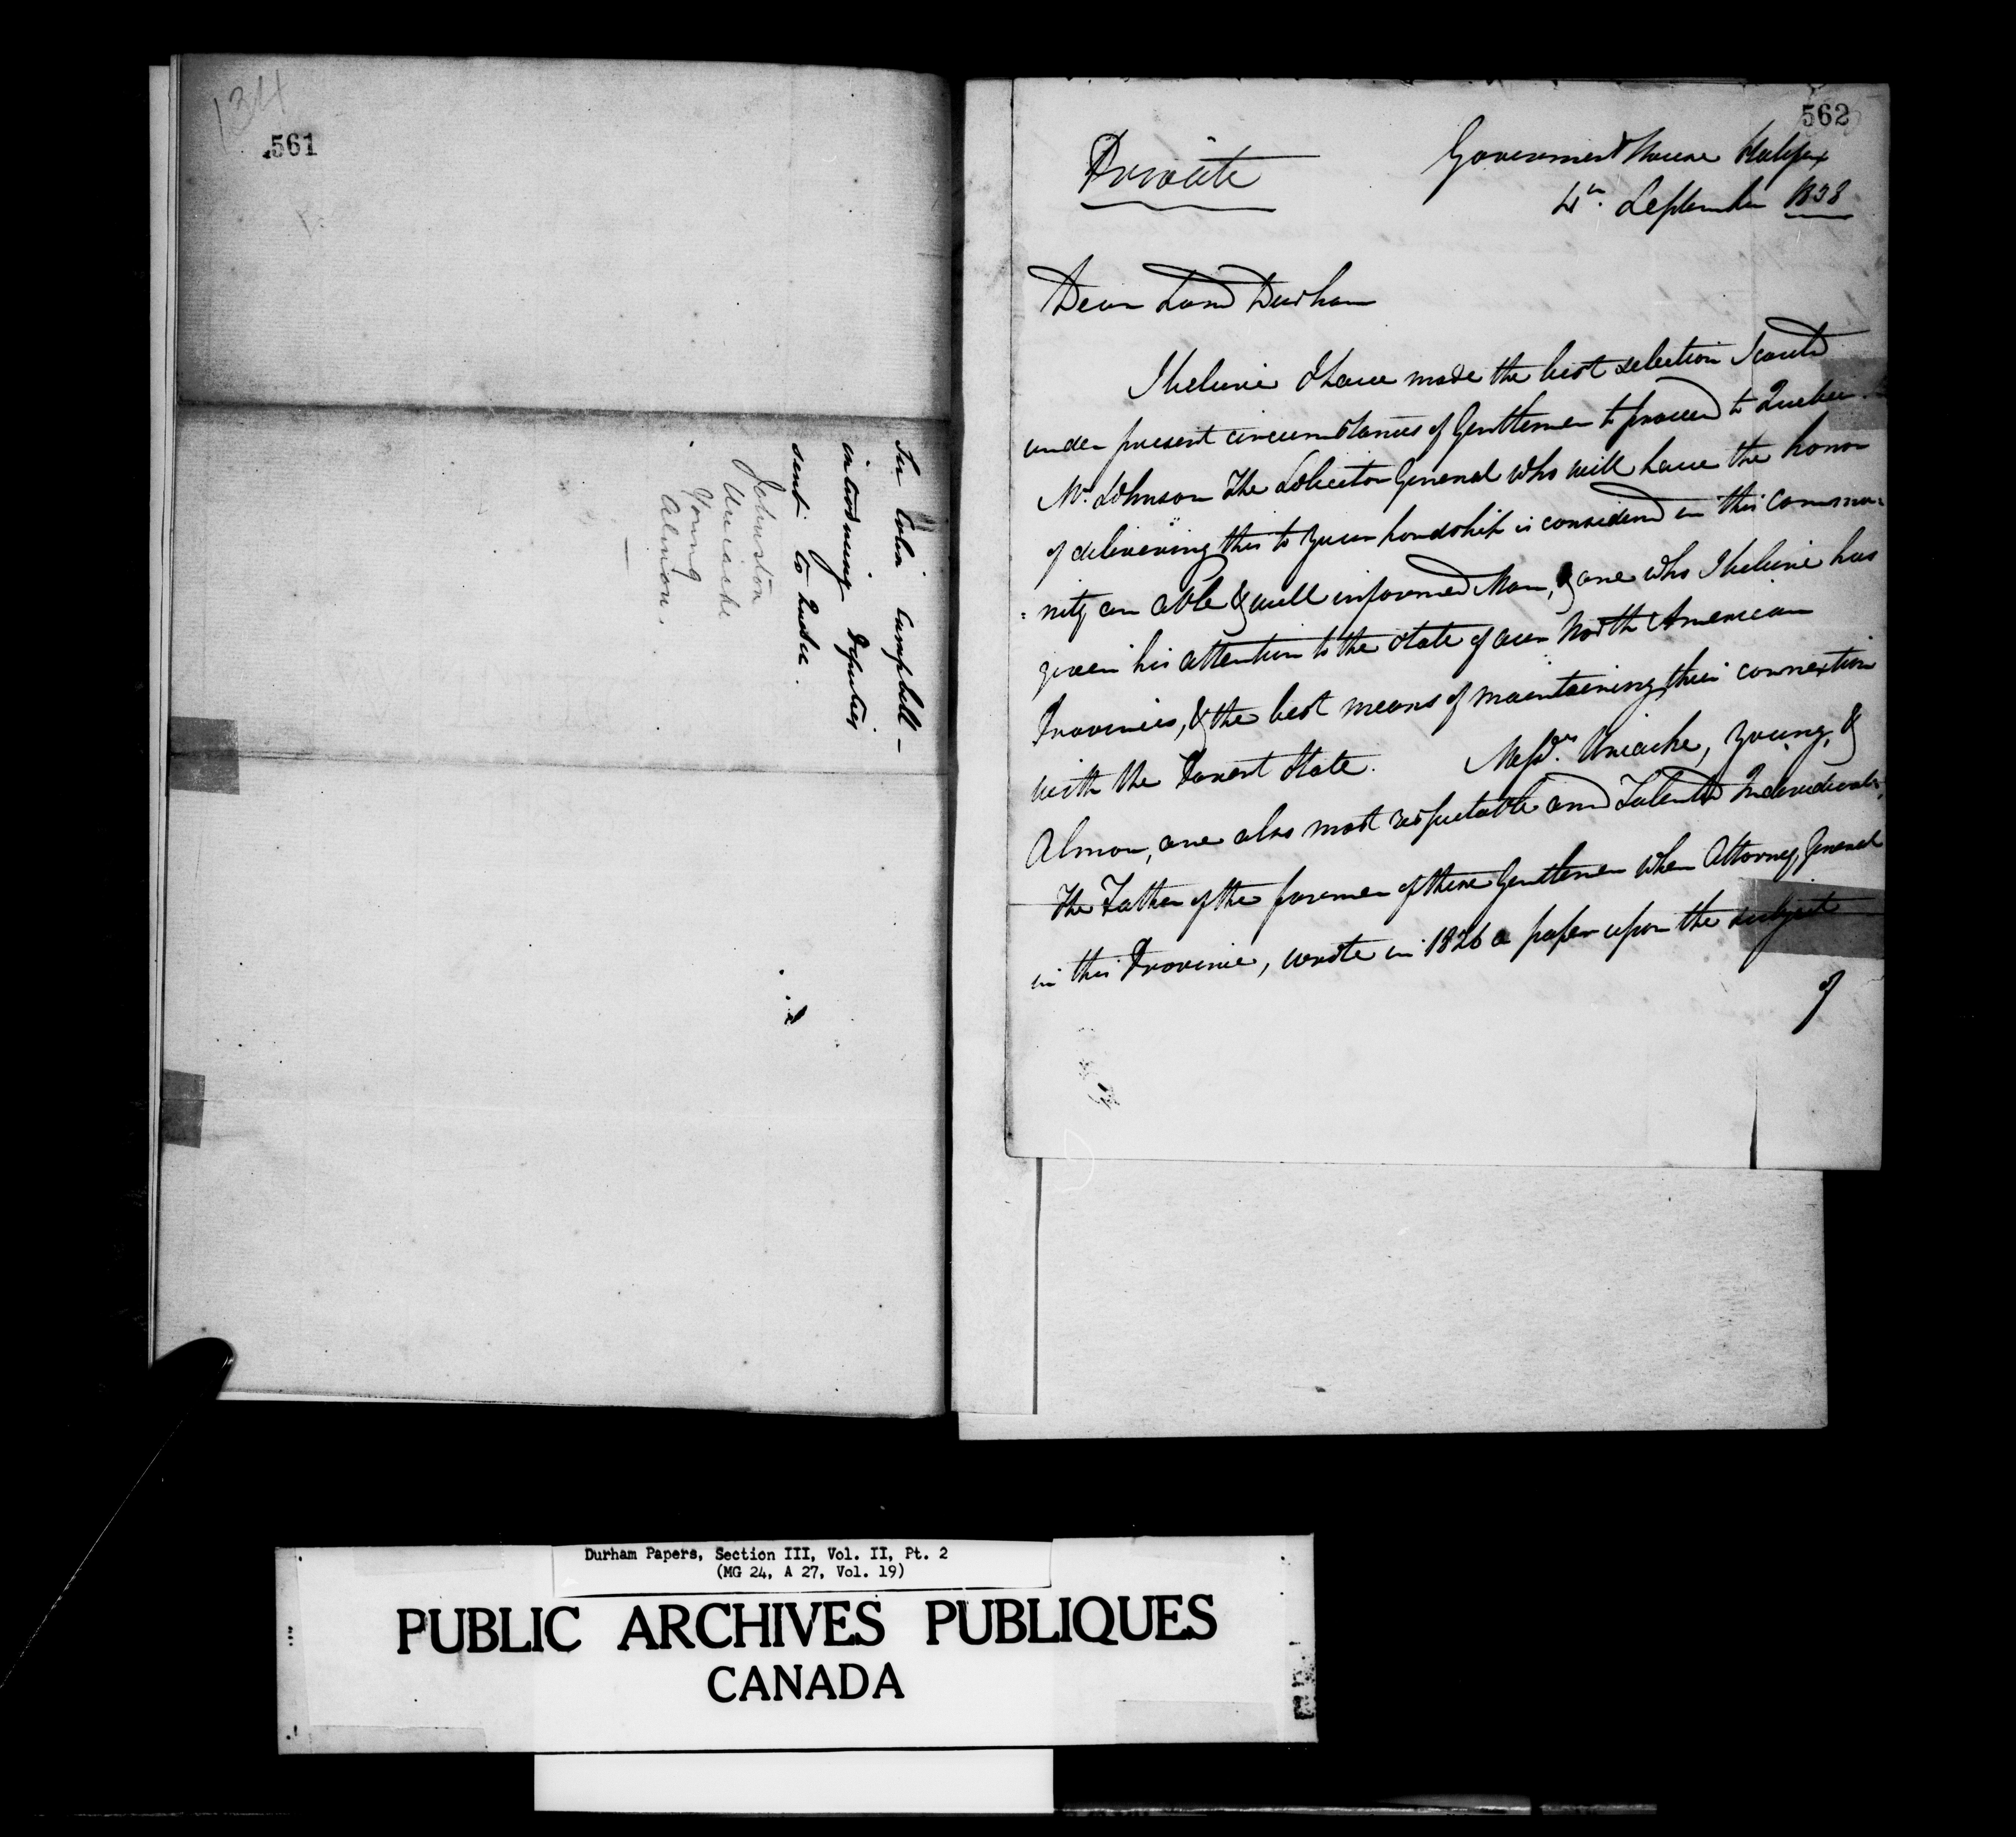 134
561
Sir Colin Campbell –
introducing Deputies
sent to Quebec.
Johnston
Uniacke
Young
Almon.
562
Private
Government House Halifax
4th. September 1838
Dear Lord Durham
I believe I have made the best selection I could
under present circumstances of Gentlemen to proceed to Quebec.
Mr. Johnson The Solicitor General who will have the honor
of delivering this to Your Lordship is considered in this Commu-
=nity an able & well informed Man, & one who I believe has
given his attention to the state of our North American
Provinces, & the best means of maintaining their connextion
with the Parent State. Messrs. Uniacke, Young, &
Almon, are also most respectable and Talented Individuals.
The Father of the former of these Gentlemen when Attorney General
in this Province, wrote in 1826 a paper upon the subject
of
Durham Papers, Section III, Vol. II, Pt. 2
(MG 24, A 27, Vol. 19)
PUBLIC ARCHIVES PUBLIQUES
CANADA